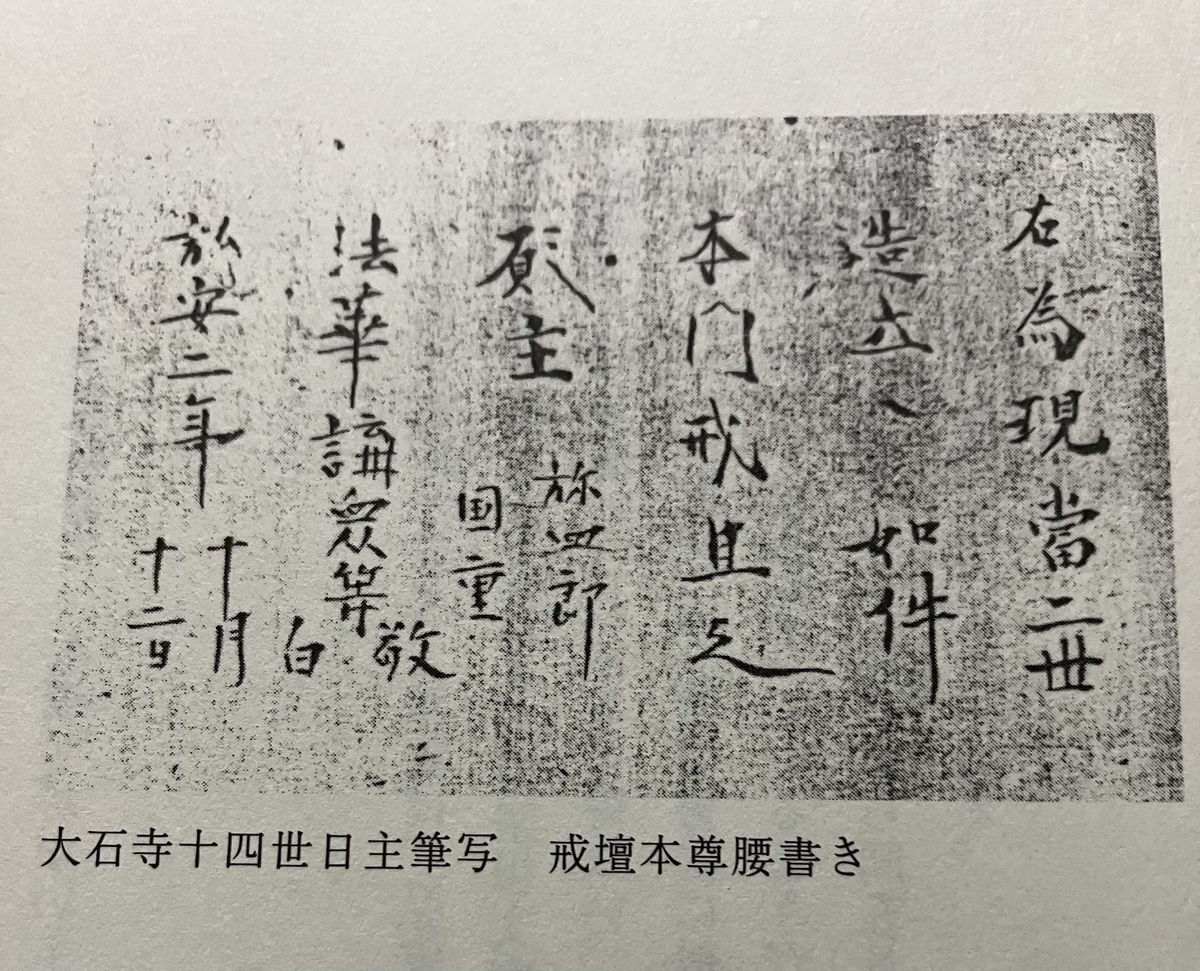 右為現當二世
造立ヽ如件
本門戒旦之
願主
弥四郎
国重
法華講衆等敬白
弘安二年
十月
十二日
大石寺十四世日主筆写　戒壇本尊腰書き